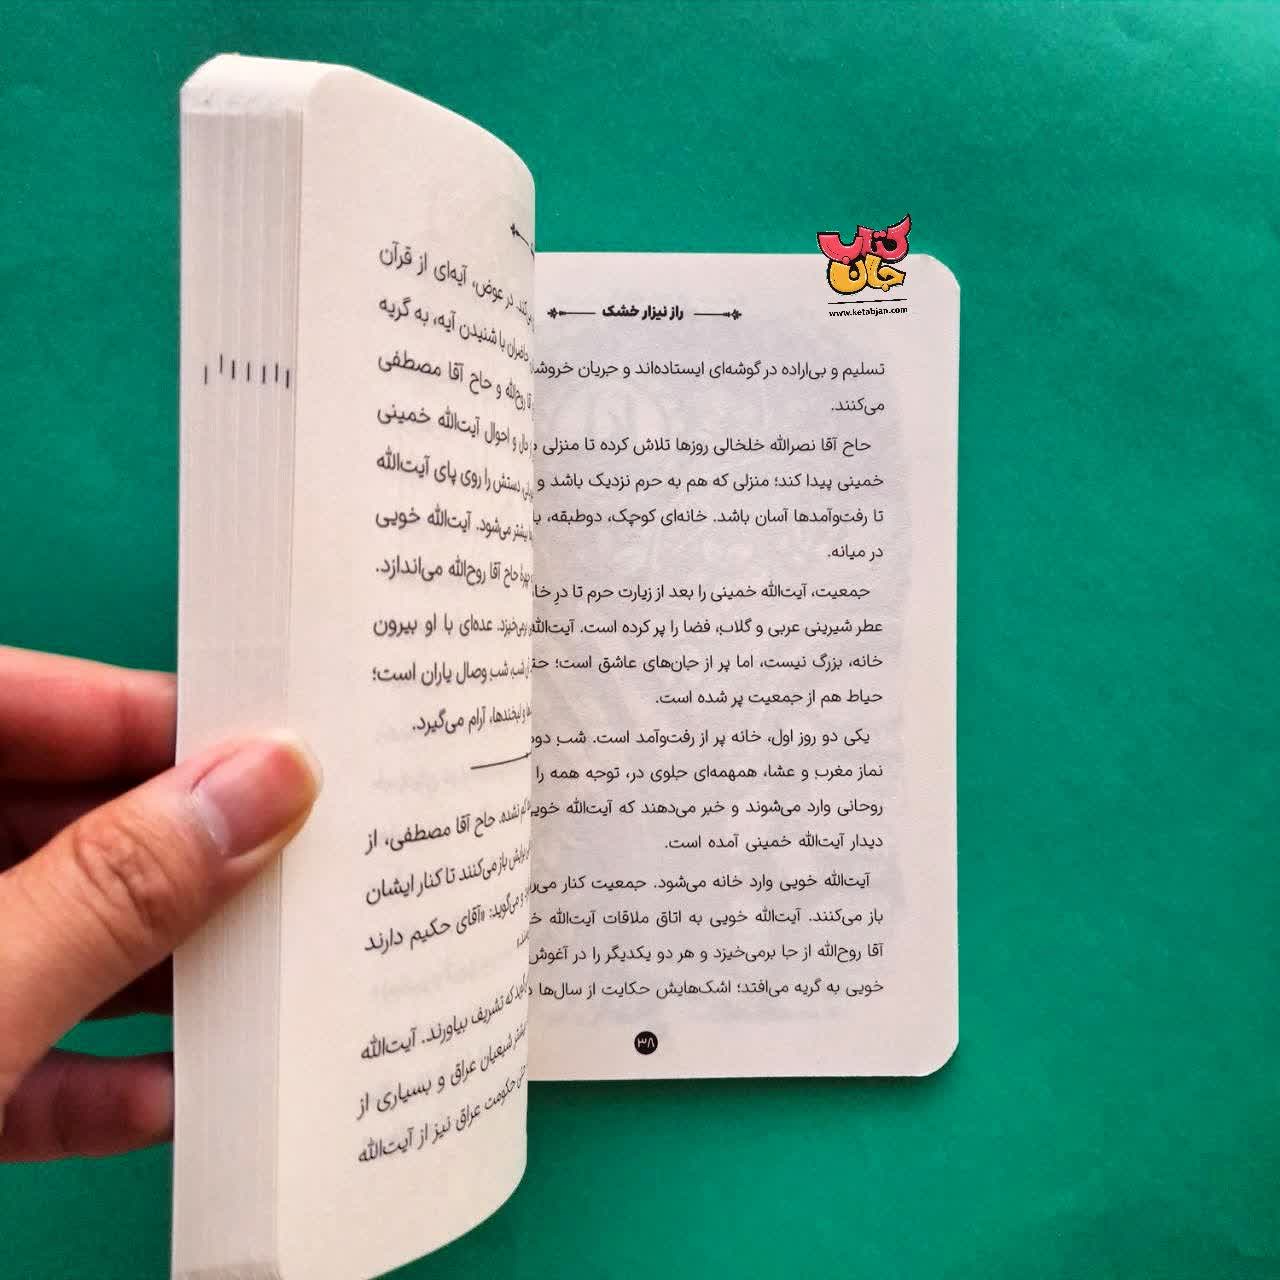 کتاب جان
www.ketabjan.com
راز نیزار خشک
تسلیم و بی‌اراده در گوشه‌ای ایستاده‌اند و جریان
می‌کنند.
حاج آقا نصرالله خلخالی روزها تلاش کرده تا منزلی
خمینی پیدا کند؛ منزلی که هم به حرم نزدیک باشد و
تا رفت‌وآمدها آسان باشد. خانه‌ای کوچک، دوطبقه،
در میانه.
جمعیت، آیت‌الله خمینی را بعد از زیارت حرم تا درِ
عطر شیرینی عربی و گلاب، فضا را پر کرده است. آیت‌الله
خانه، بزرگ نیست، اما پر از جان‌های عاشق است؛
حیاط هم از جمعیت پر شده است.
یکی دو روز اول، خانه پر از رفت‌وآمد است. شب
نماز مغرب و عشا، همهمه‌ای جلوی در، توجه همه را
روحانی وارد می‌شوند و خبر می‌دهند که آیت‌الله خویی
دیدار آیت‌الله خمینی آمده است.
آیت‌الله خویی وارد خانه می‌شود. جمعیت کنار
باز می‌کنند. آیت‌الله خویی به اتاق ملاقات آیت‌الله
آقا روح‌الله از جا برمی‌خیزد و هر دو یکدیگر را در آغوش
خویی به گریه می‌افتد؛ اشک‌هایش حکایت از سال‌ها
۳۸
در عوض، آیه‌ای از قرآن
حاضران با شنیدن آیه، به گریه
روح‌الله و حاج آقا مصطفی
و احوال آیت‌الله خمینی
دستش را روی پای آیت‌الله
بیشتر می‌شود. آیت‌الله خویی
چهرهٔ حاج آقا روح‌الله می‌اندازد.
برمی‌خیزد. عده‌ای با او بیرون
شب، شبِ وصال یاران است؛
و لبخندها، آرام می‌گیرد.
نشده. حاج آقا مصطفی، از
برایش باز می‌کنند تا کنار ایشان
و می‌گوید: «آقای حکیم دارند
که تشریف بیاورند. آیت‌الله
شیعیان عراق و بسیاری از
حکومت عراق نیز از آیت‌الله